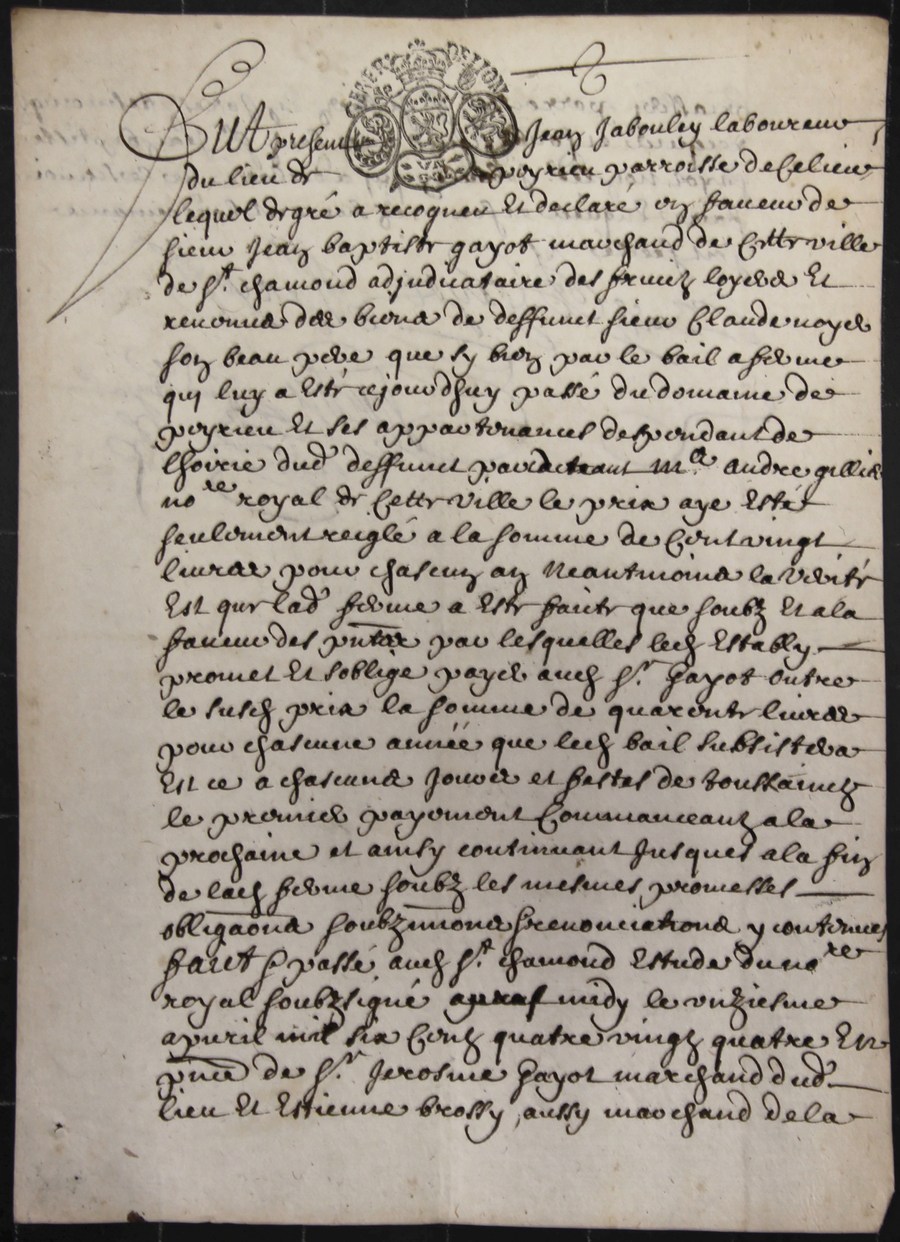 GENER DE LION
Fut present Jean Jabouley laboureur
du lieu de poyrieu parroisse de Celieu
lequel de gré a recogneu Et declaré en faveur de
sieur Jean baptiste gayot marchand de Cette ville
de st. chamond adjudicataire des fruitz loyers Et
revenus des biens de deffunct sieur Claude noyer
son beau pere que sy bien par le bail a ferme
qui luy a Esté cejourdhuy passé du domaine de
poyrieu Et ses appartenances despendant de
lhoirie dud deffunct pardevant Me. andre gillier
nore royal de Cette ville le prix aye Esté
seulement reiglé a la somme de Cent vingt
livres pour chascun an Neantmoins la verité
Est que lad ferme a Este faite que soubz Et a la
faveur des pntes par lesquelles led Estably
promet Et soblige payer aud sr. Gayot outre
le susd prix la somme de quarente livres
pour chascune année que led bail subsistera
Est ce a chascuns Jours et festes de toussaintz
le premier payement Commanceant a la
prochaine et ainsy continuant Jusques a la fin
de lad ferme soubz les mesmes promesses
obligaons soubzmions renonciations y contenues
fait passé aud st. chamond Estude du nore
royal soubzsigné apres midy le unziesme
apvril mil six Centz quatre vingtz quatre En
pnce de sr. Jerosme Gayot marchand dud
lieu Et Estienne brossy aussy marchand de la